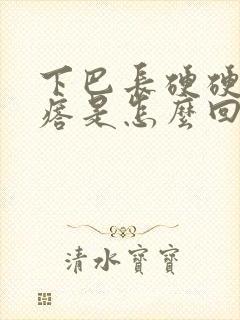 下巴长硬硬
痞是怎麼回
清水寶寶